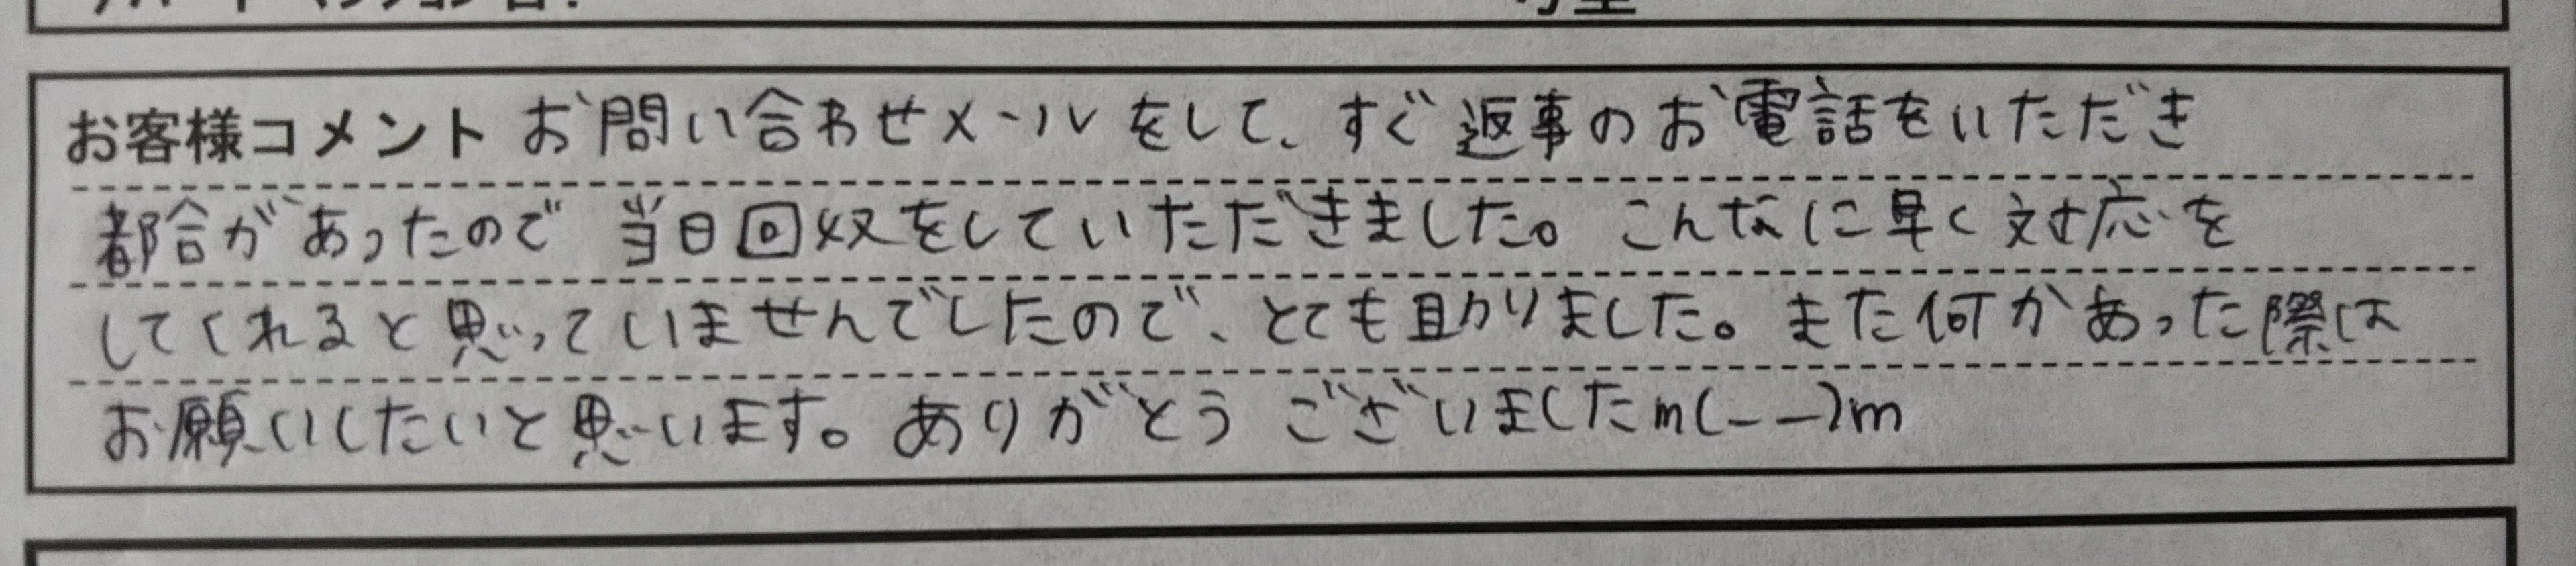 お客様コメント お問い合わせメールをして、すぐ返事のお電話をいただき
都合があったので 当日回収をしていただきました。こんなに早く対応を
してくれると思っていませんでしたので、とても助かりました。また何かあった際は
お願いしたいと思います。ありがとうございましたm(__)m